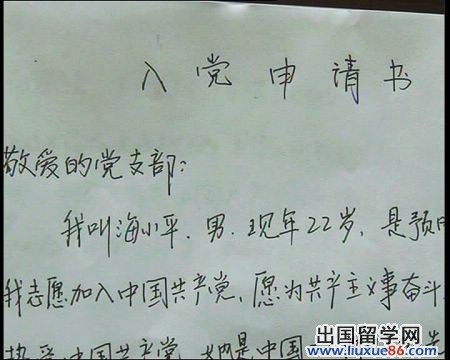 入党申请书
敬爱的党支部:
我叫海小平、男、现年22岁,是预
我志愿加入中国共产党、愿为共产主义事奋斗
热爱中国共产党
是中国
出国留学网
www.liuxue86.com